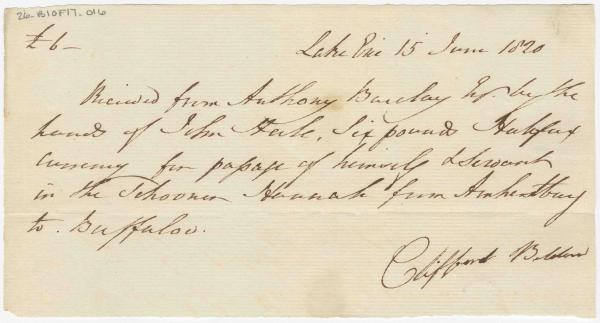 26-B10F17-016
£6- Lake Erie 15 June 1820
Received from Anthony Barclay Esqr. by the
hands of John Hale, Six pounds Halifax
Currency for passage of himself & Servant
in the Schooner Hannah from Amherstburg
to. Buffaloo.
Clifford Belden